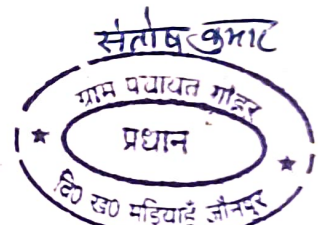 संतोष कुमार
ग्राम पंचायत गोहर
प्रधान
वि० ख० मड़ियाहूँ जौनपुर